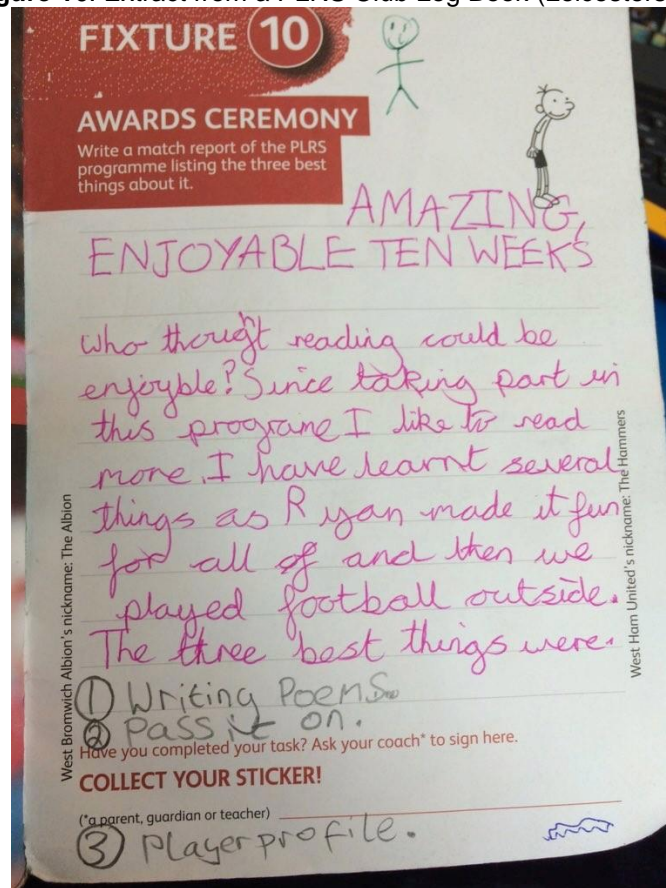 FIXTURE 10
AWARDS CEREMONY
Write a match report of the PLRS
programme listing the three best
things about it.
AMAZING,
ENJOYABLE TEN WEEKS
who thougt reading could be
enjoyble? Since taking part in
this programe I like to read
more. I have learnt several
things as Ryan made it fun
for all of and then we
played football outside.
The three best things were.
① Writing Poems.
② Pass it on.
Have you completed your task? Ask your coach* to sign here.
COLLECT YOUR STICKER!
(*a parent, guardian or teacher)
③ Player profile.
West Bromwich Albion's nickname: The Albion
West Ham United's nickname: The Hammers